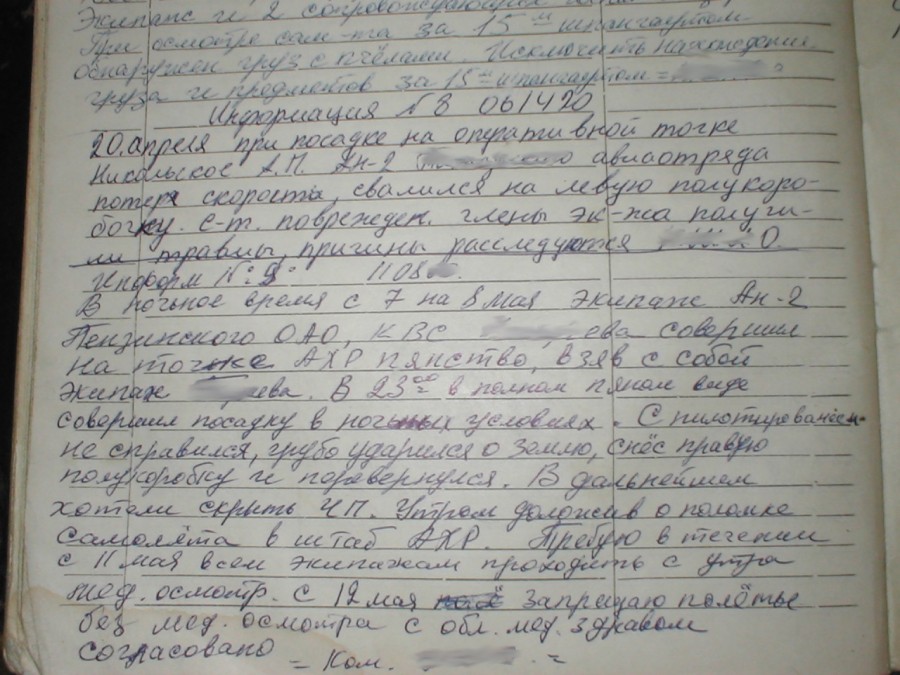 Экипаж и 2 сопровождающих
При осмотре сам-та за 15 м шпангоутом
обнаружен груз с пчёлами. Исключить нахождение
груза и предметов за 15 м шпангоутом =
Информация № 8 061420
20.апреля при посадке на оперативной точке
Никольское А.П. Ан-2 авиаотряда
потеря скорости, свалился на левую полукоро-
бочку. с-т. поврежден. члены эк-жа получи-
ли травмы, причины расследуются О.
Информ № 9: 1108
В ночное время с 7 на 8 мая экипаж Ан-2
Пензинского ОАО, КВС ева совершил
на точке АХР пянство, взяв с собой
экипаж ева. В 23 00 в полном пяном виде
совершил посадку в ночных условиях. С пилотированием
не справился, грубо ударился о землю, снёс правую
полукоробку и перевернулся. В дальнейшем
хотели скрыть ЧП. Утром доложив о поломке
самолёта в штаб АХР. Требую в течении
с 11 мая всем экипажам проходить с утра
мед. осмотр. с 12 мая запрещаю полёты
без мед. осмотра с обл. мед. здравом
согласовано = Ком. =